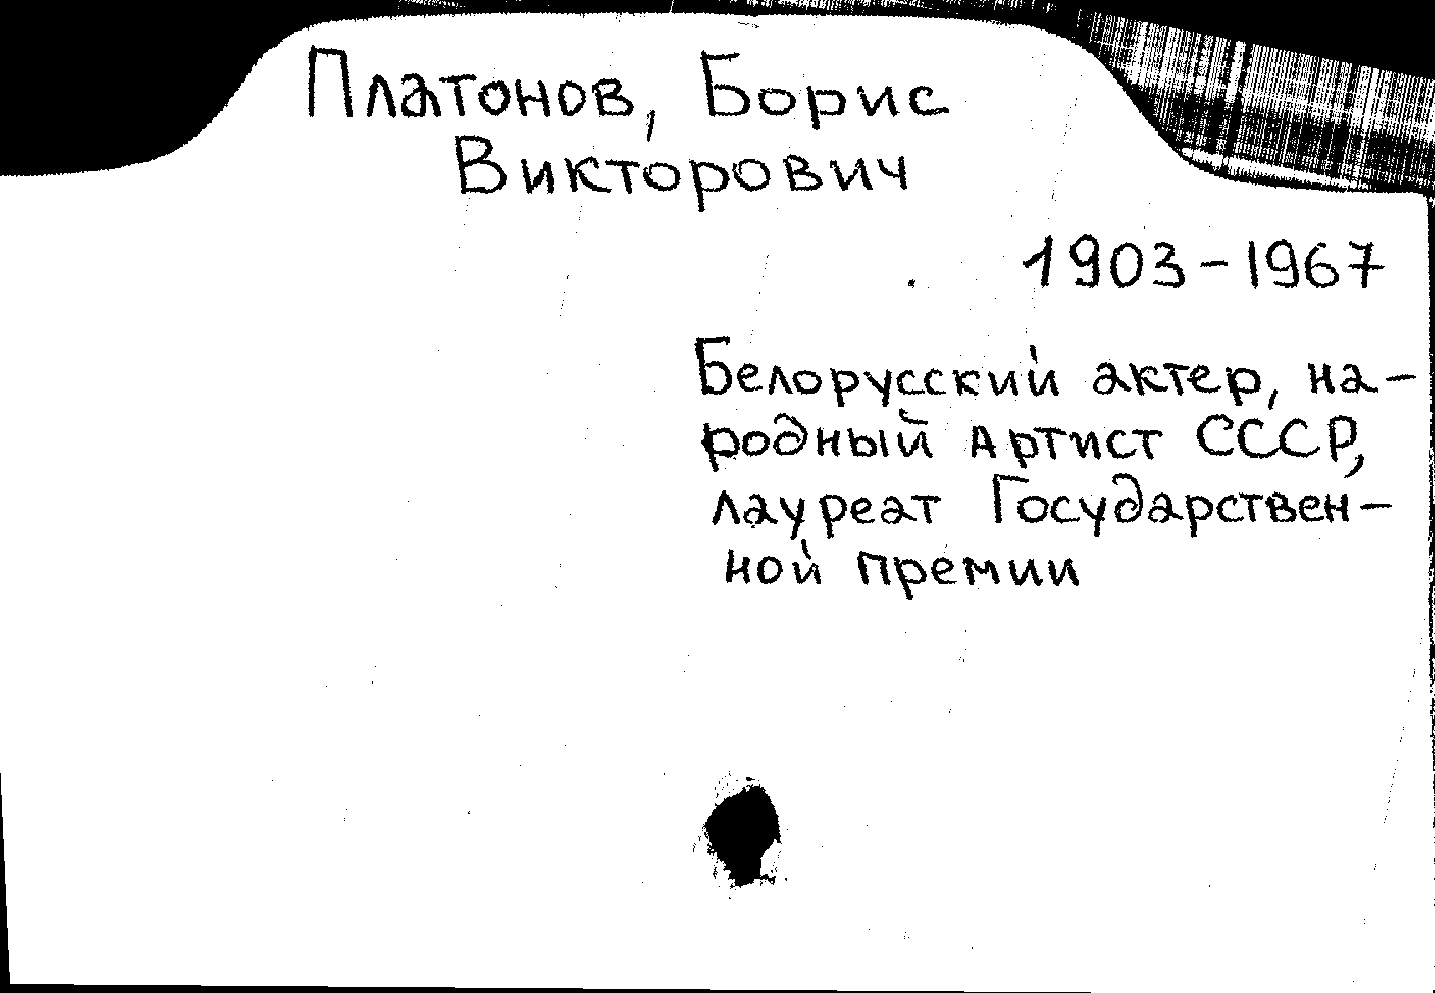 Платонов, Борис
Викторович
1903-1967
Белорусский актер, на-
родный артист СССР,
лауреат Государствен-
ной премии